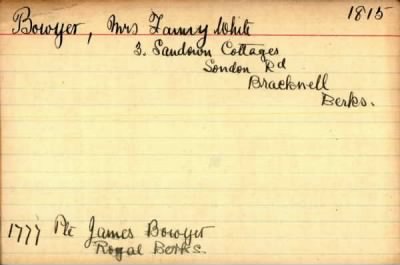 1815
Bowyer, Mrs Fanny White
3. Sandown Cottages
London Rd
Bracknell
Berks.
1777 Pte James Bowyer
Royal Berks.